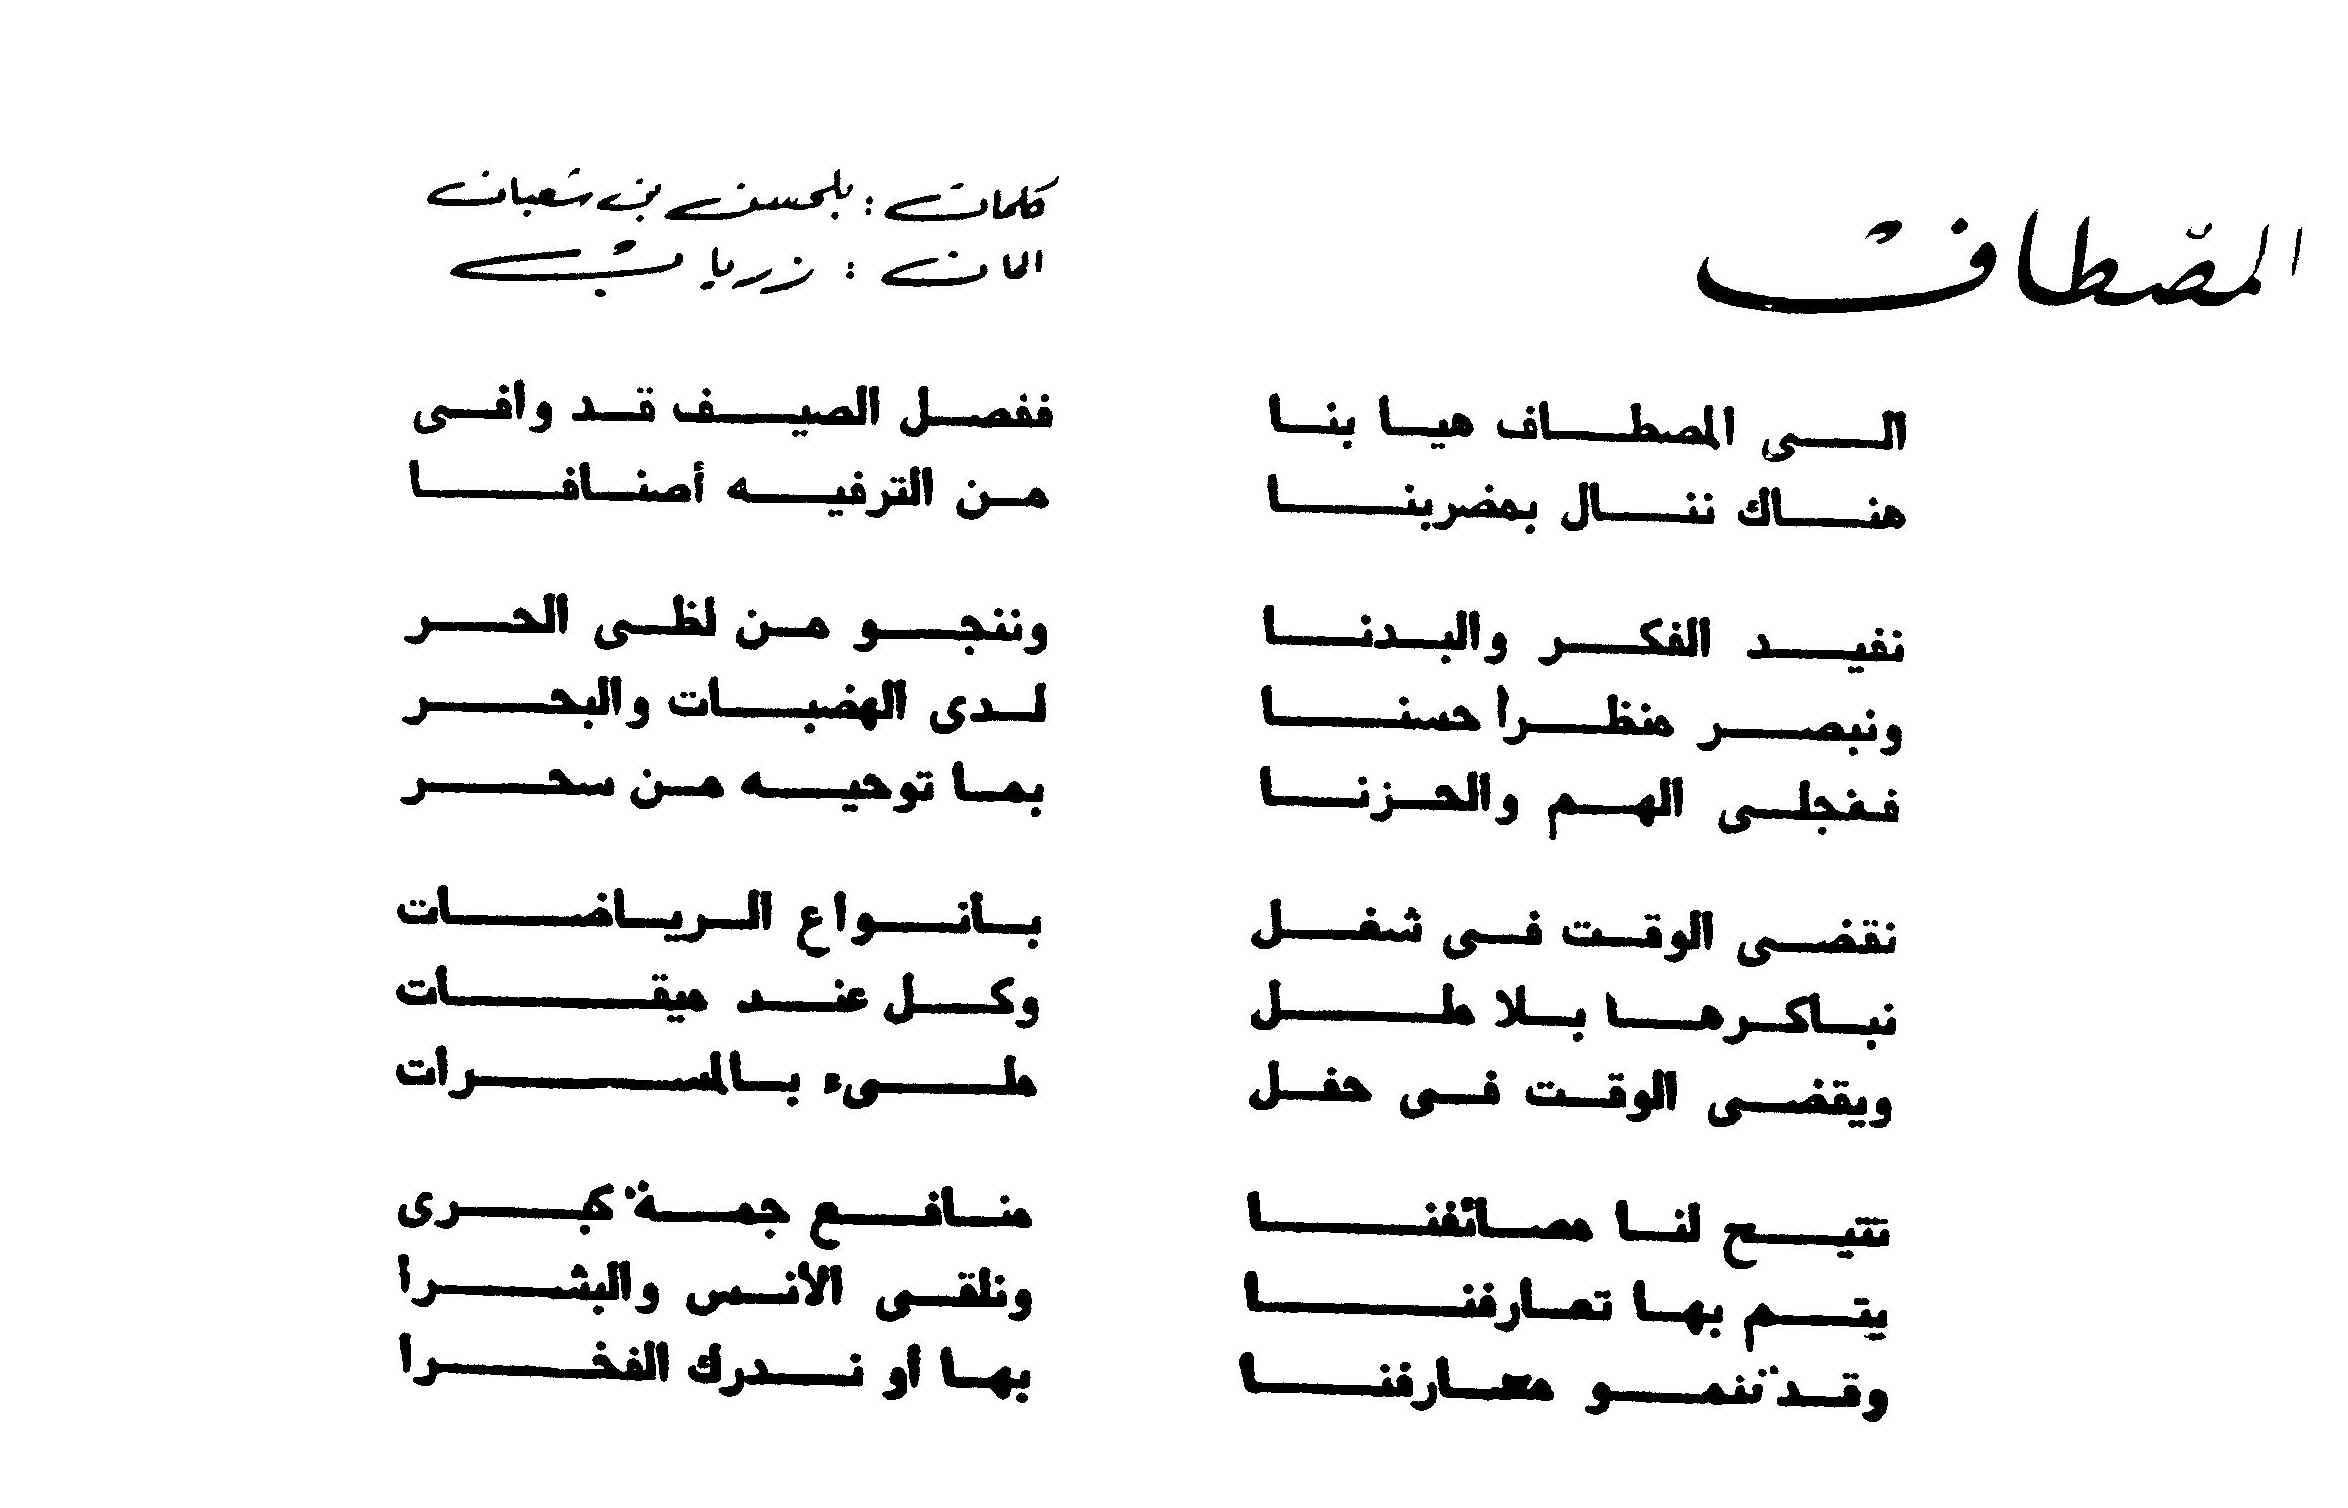 المصطاف
كلمات : بلحسن بن شعبان
الحان : زرياب
الى المصطاف هيا بنا ففصل الصيف قد وافى
هناك ننال بمضربنا من الترفيه أصنافا
نفيد الفكر والبدنا وننجو من لظى الحر
ونبصر منظرا حسنا لدى الهضبات والبحر
فنجلى الهم والحزنا بما توحيه من سحر
نقضى الوقت فى شغل بانواع الرياضات
نباكرها بلا طل وكل عند ميقات
ويقضى الوقت فى حفل ملىء بالمسرات
تتيح لنا مصائفنا منافع جمة كبرى
يتم بها تعارفنا ونلقى الأنس والبشرا
وقد تنمو معارفنا بها أو ندرك الفخرا